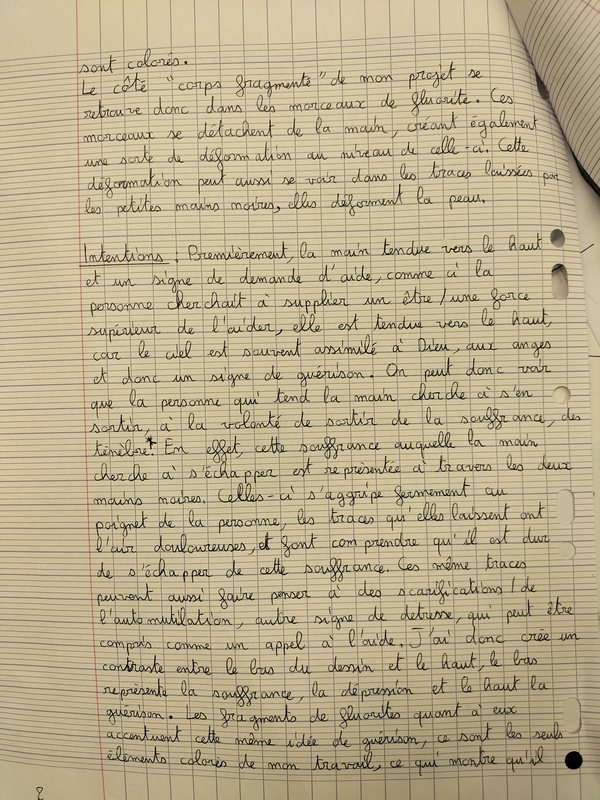 sont colorés.
Le côté "corps fragmenté" de mon projet se
retrouve donc dans les morceaux de fluorite. Ces
morceaux se détachent de la main, créant également
une sorte de déformation au niveau de celle-ci. Cette
déformation peut aussi se voir dans les traces laissées par
les petites mains noires, elles déforment la peau.
Intentions : Premièrement, la main tendue vers le haut
et un signe de demande d'aide, comme ci la
personne cherchait à supplier un être / une force
supérieur de l'aider, elle est tendue vers le haut,
car le ciel est souvent assimilé à Dieu, aux anges
et donc un signe de guérison. On peut donc voir
que la personne qui tend la main cherche à s'en
sortir, à la volonté de sortir de la souffrance, des
ténèbre.* En effet, cette souffrance auquelle la main
cherche à s'échapper est représentée à travers les deux
mains noires. Celles-ci s'aggripe fermement au
poignet de la personne, les traces qu'elles laissent ont
l'air douloureuses, et font comprendre qu'il est dur
de s'échapper de cette souffrance. Ces même traces
peuvent aussi faire penser à des scarifications / de
l'automutilation, autre signe de détresse, qui peut être
compris comme un appel à l'aide. J'ai donc crée un
contraste entre le bas du dessin et le haut, le bas
représente la souffrance, la dépression et le haut la
guérison. Les fragments de fluorites quant à eux
accentuent cette même idée de guérison, ce sont les seuls
éléments colorés de mon travail, ce qui montre qu'il
2